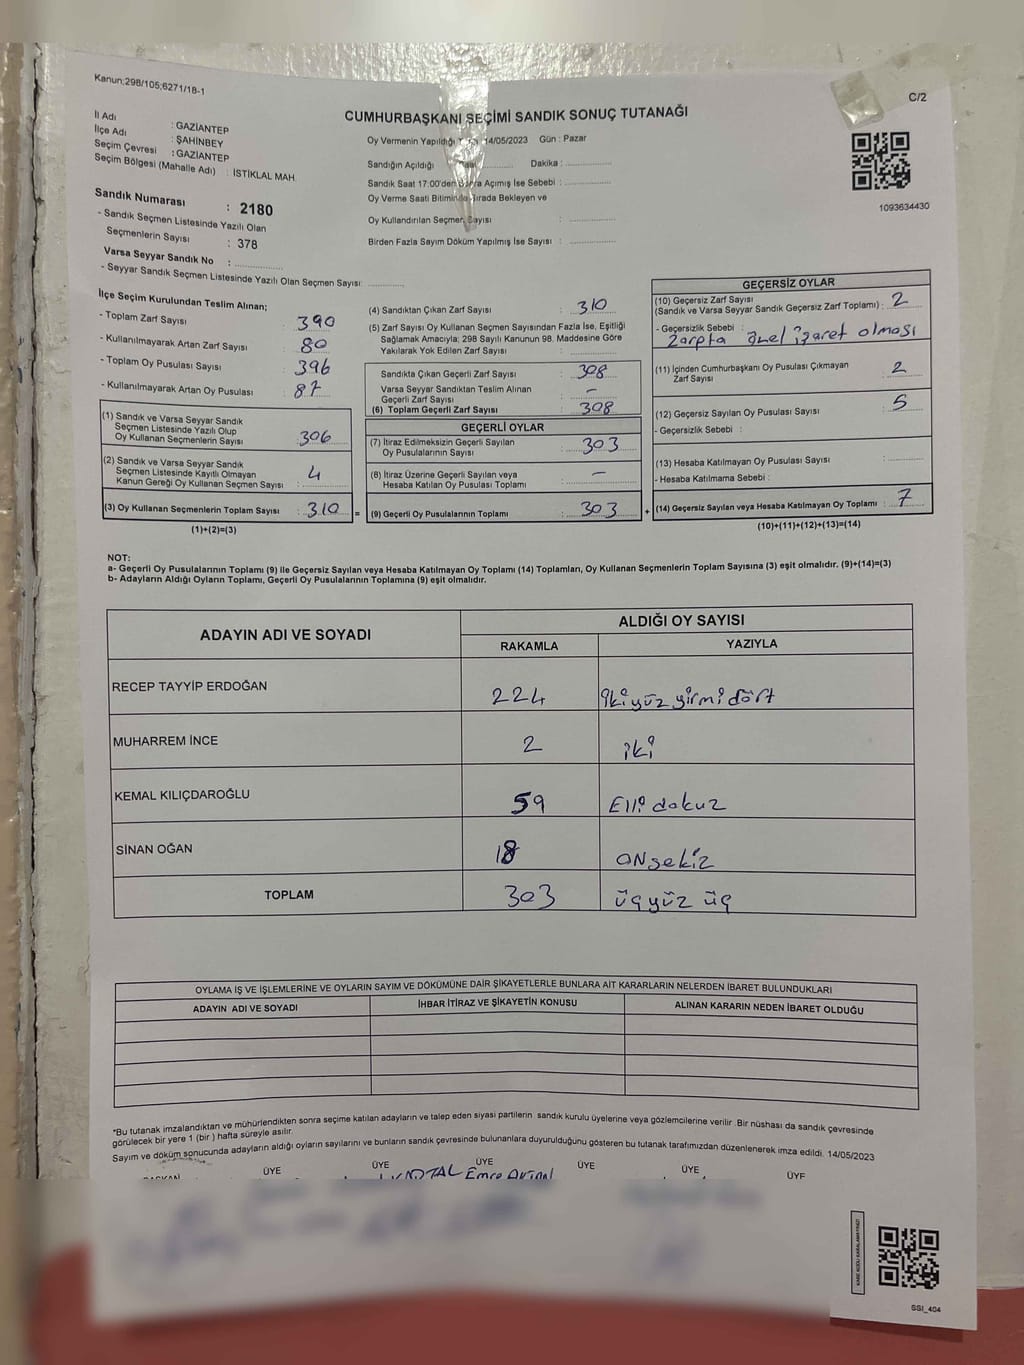 Kanun:298/105;6271/18-1
C/2
CUMHURBAŞKANI SEÇİMİ SANDIK SONUÇ TUTANAĞI
İl Adı : GAZİANTEP
İlçe Adı : ŞAHİNBEY
Seçim Çevresi : GAZİANTEP
Seçim Bölgesi (Mahalle Adı) : İSTİKLAL MAH.
Oy Vermenin Yapıldığı 14/05/2023 Gün : Pazar
Sandığın Açıldığı Dakika :
Sandık Saat 17:00'den Açımış İse Sebebi :
Oy Verme Saati Bitiminde Sırada Bekleyen ve
Oy Kullandırılan Seçmen Sayısı :
Birden Fazla Sayım Döküm Yapılmış İse Sayısı :
1093634430
Sandık Numarası : 2180
- Sandık Seçmen Listesinde Yazılı Olan
Seçmenlerin Sayısı : 378
Varsa Seyyar Sandık No :
- Seyyar Sandık Seçmen Listesinde Yazılı Olan Seçmen Sayısı:
İlçe Seçim Kurulundan Teslim Alınan;
- Toplam Zarf Sayısı : 390
- Kullanılmayarak Artan Zarf Sayısı : 80
- Toplam Oy Pusulası Sayısı : 396
- Kullanılmayarak Artan Oy Pusulası : 87
(1) Sandık ve Varsa Seyyar Sandık
Seçmen Listesinde Yazılı Olup
Oy Kullanan Seçmenlerin Sayısı : 306
(2) Sandık ve Varsa Seyyar Sandık
Seçmen Listesinde Kayıtlı Olmayan
Kanun Gereği Oy Kullanan Seçmen Sayısı : 4
(3) Oy Kullanan Seçmenlerin Toplam Sayısı : 310 =
(1)+(2)=(3)
(4) Sandıktan Çıkan Zarf Sayısı : 310
(5) Zarf Sayısı Oy Kullanan Seçmen Sayısından Fazla İse, Eşitliği
Sağlamak Amacıyla; 298 Sayılı Kanunun 98. Maddesine Göre
Yakılarak Yok Edilen Zarf Sayısı :
Sandıkta Çıkan Geçerli Zarf Sayısı : 308
Varsa Seyyar Sandıktan Teslim Alınan
Geçerli Zarf Sayısı : –
(6) Toplam Geçerli Zarf Sayısı : 308
GEÇERLİ OYLAR
(7) İtiraz Edilmeksizin Geçerli Sayılan
Oy Pusulalarının Sayısı : 303
(8) İtiraz Üzerine Geçerli Sayılan veya
Hesaba Katılan Oy Pusulası Toplamı : –
(9) Geçerli Oy Pusulalarının Toplamı : 303 +
GEÇERSİZ OYLAR
(10) Geçersiz Zarf Sayısı
(Sandık ve Varsa Seyyar Sandık Geçersiz Zarf Toplamı) : 2
- Geçersizlik Sebebi :
Zarpta özel işaret olması
(11) İçinden Cumhurbaşkanı Oy Pusulası Çıkmayan
Zarf Sayısı : 2
(12) Geçersiz Sayılan Oy Pusulası Sayısı : 5
- Geçersizlik Sebebi :
(13) Hesaba Katılmayan Oy Pusulası Sayısı :
- Hesaba Katılmama Sebebi :
(14) Geçersiz Sayılan veya Hesaba Katılmayan Oy Toplamı : 7
(10)+(11)+(12)+(13)=(14)
NOT:
a- Geçerli Oy Pusulalarının Toplamı (9) ile Geçersiz Sayılan veya Hesaba Katılmayan Oy Toplamı (14) Toplamları, Oy Kullanan Seçmenlerin Toplam Sayısına (3) eşit olmalıdır. (9)+(14)=(3)
b- Adayların Aldığı Oyların Toplamı, Geçerli Oy Pusulalarının Toplamına (9) eşit olmalıdır.
ADAYIN ADI VE SOYADI
ALDIĞI OY SAYISI
RAKAMLA YAZIYLA
RECEP TAYYİP ERDOĞAN 224 ikiyüz yirmi dört
MUHARREM İNCE 2 iki
KEMAL KILIÇDAROĞLU 59 Elli dokuz
SİNAN OĞAN 18 ONsekiz
TOPLAM 303 üçyüz üç
OYLAMA İŞ VE İŞLEMLERİNE VE OYLARIN SAYIM VE DÖKÜMÜNE DAİR ŞİKAYETLERLE BUNLARA AİT KARARLARIN NELERDEN İBARET BULUNDUKLARI
ADAYIN ADI VE SOYADI İHBAR İTİRAZ VE ŞİKAYETİN KONUSU ALINAN KARARIN NEDEN İBARET OLDUĞU
*Bu tutanak imzalandıktan ve mühürlendikten sonra seçime katılan adayların ve talep eden siyasi partilerin sandık kurulu üyelerine veya gözlemcilerine verilir. Bir nüshası da sandık çevresinde
görülecek bir yere 1 (bir ) hafta süreyle asılır.
Sayım ve döküm sonucunda adayların aldığı oyların sayılarını ve bunların sandık çevresinde bulunanlara duyurulduğunu gösteren bu tutanak tarafımızdan düzenlenerek imza edildi. 14/05/2023
BAŞKAN ÜYE ÜYE ÜYE ÜYE ÜYE ÜYE
Emre
SSI_404